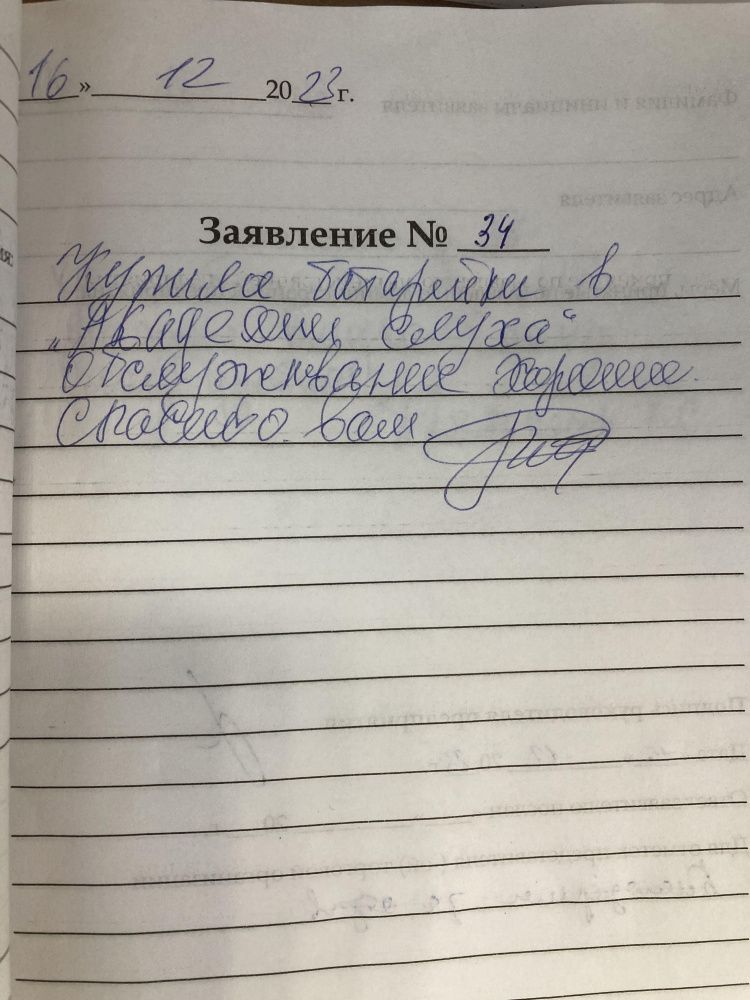 16 » 12 2023 г.
Заявление № 34
Купила батарейки в
„Академии Слуха“
Обслуживание хорошее.
Спасибо вам.